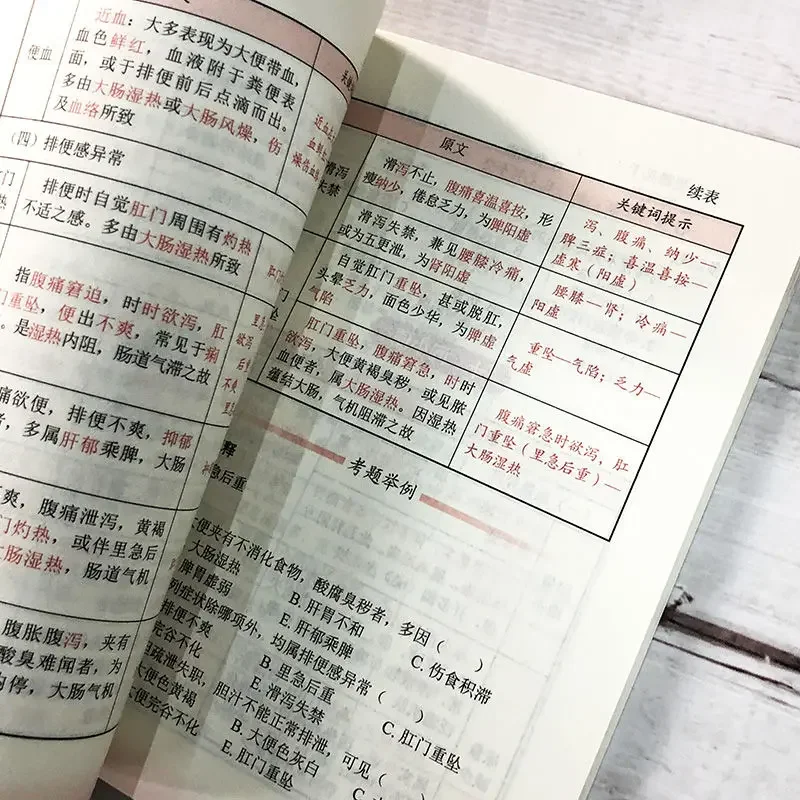 近血：大多表现为大便带血，
血色鲜红，血液附于粪便表
面，或于排便前后点滴而出。
多由大肠湿热或大肠风燥，伤
及血络所致
便血
（四）排便感异常
排便时自觉肛门周围有灼热
不适之感。多由大肠湿热所致
指腹痛窘迫，时时欲泻，肛
门重坠，便出不爽，常见于痢
是湿热内阻，肠道气滞之故
痛欲便，排便不爽，抑郁
者，多属肝郁乘脾，大肠
不爽，腹痛泄泻，黄褐
门灼热，或伴里急后
大肠湿热，肠道气机
腹胀腹泻，夹有
酸臭难闻者，为
内停，大肠气机
续表
原文
关键词提示
滑泻
失禁
滑泻不止，腹痛喜温喜按，形
瘦纳少，倦怠乏力，为脾阳虚
泻、腹痛、纳少—
脾三症；喜温喜按—
虚寒（阳虚）
滑泻失禁，兼见腰膝冷痛，
或为五更泄，为肾阳虚
腰膝—肾；冷痛—
阳虚
自觉肛门重坠，甚或脱肛，
头晕乏力，面色少华，为脾虚
气陷
重坠—气陷；乏力—
气虚
肛门重坠，腹痛窘急，时时
欲泻，大便黄褐臭秽，或见脓
血便者，属大肠湿热。因湿热
蕴结大肠，气机阻滞之故
腹痛窘急时欲泻，肛
门重坠（里急后重）—
大肠湿热
释
急后重
考题举例
大便夹有不消化食物，酸腐臭秽者，多因（ ）
大肠湿热
B. 肝胃不和
C. 伤食积滞
脾胃虚弱
E. 肝郁乘脾
列症状除哪项外，均属排便感异常（ ）
排便不爽
B. 里急后重
C. 肛门重坠
完谷不化
E. 滑泻失禁
疏泄失职，胆汁不能正常排泄，可见（
大便色黄褐
B. 大便色灰白
大便完谷不化
E. 肛门重坠